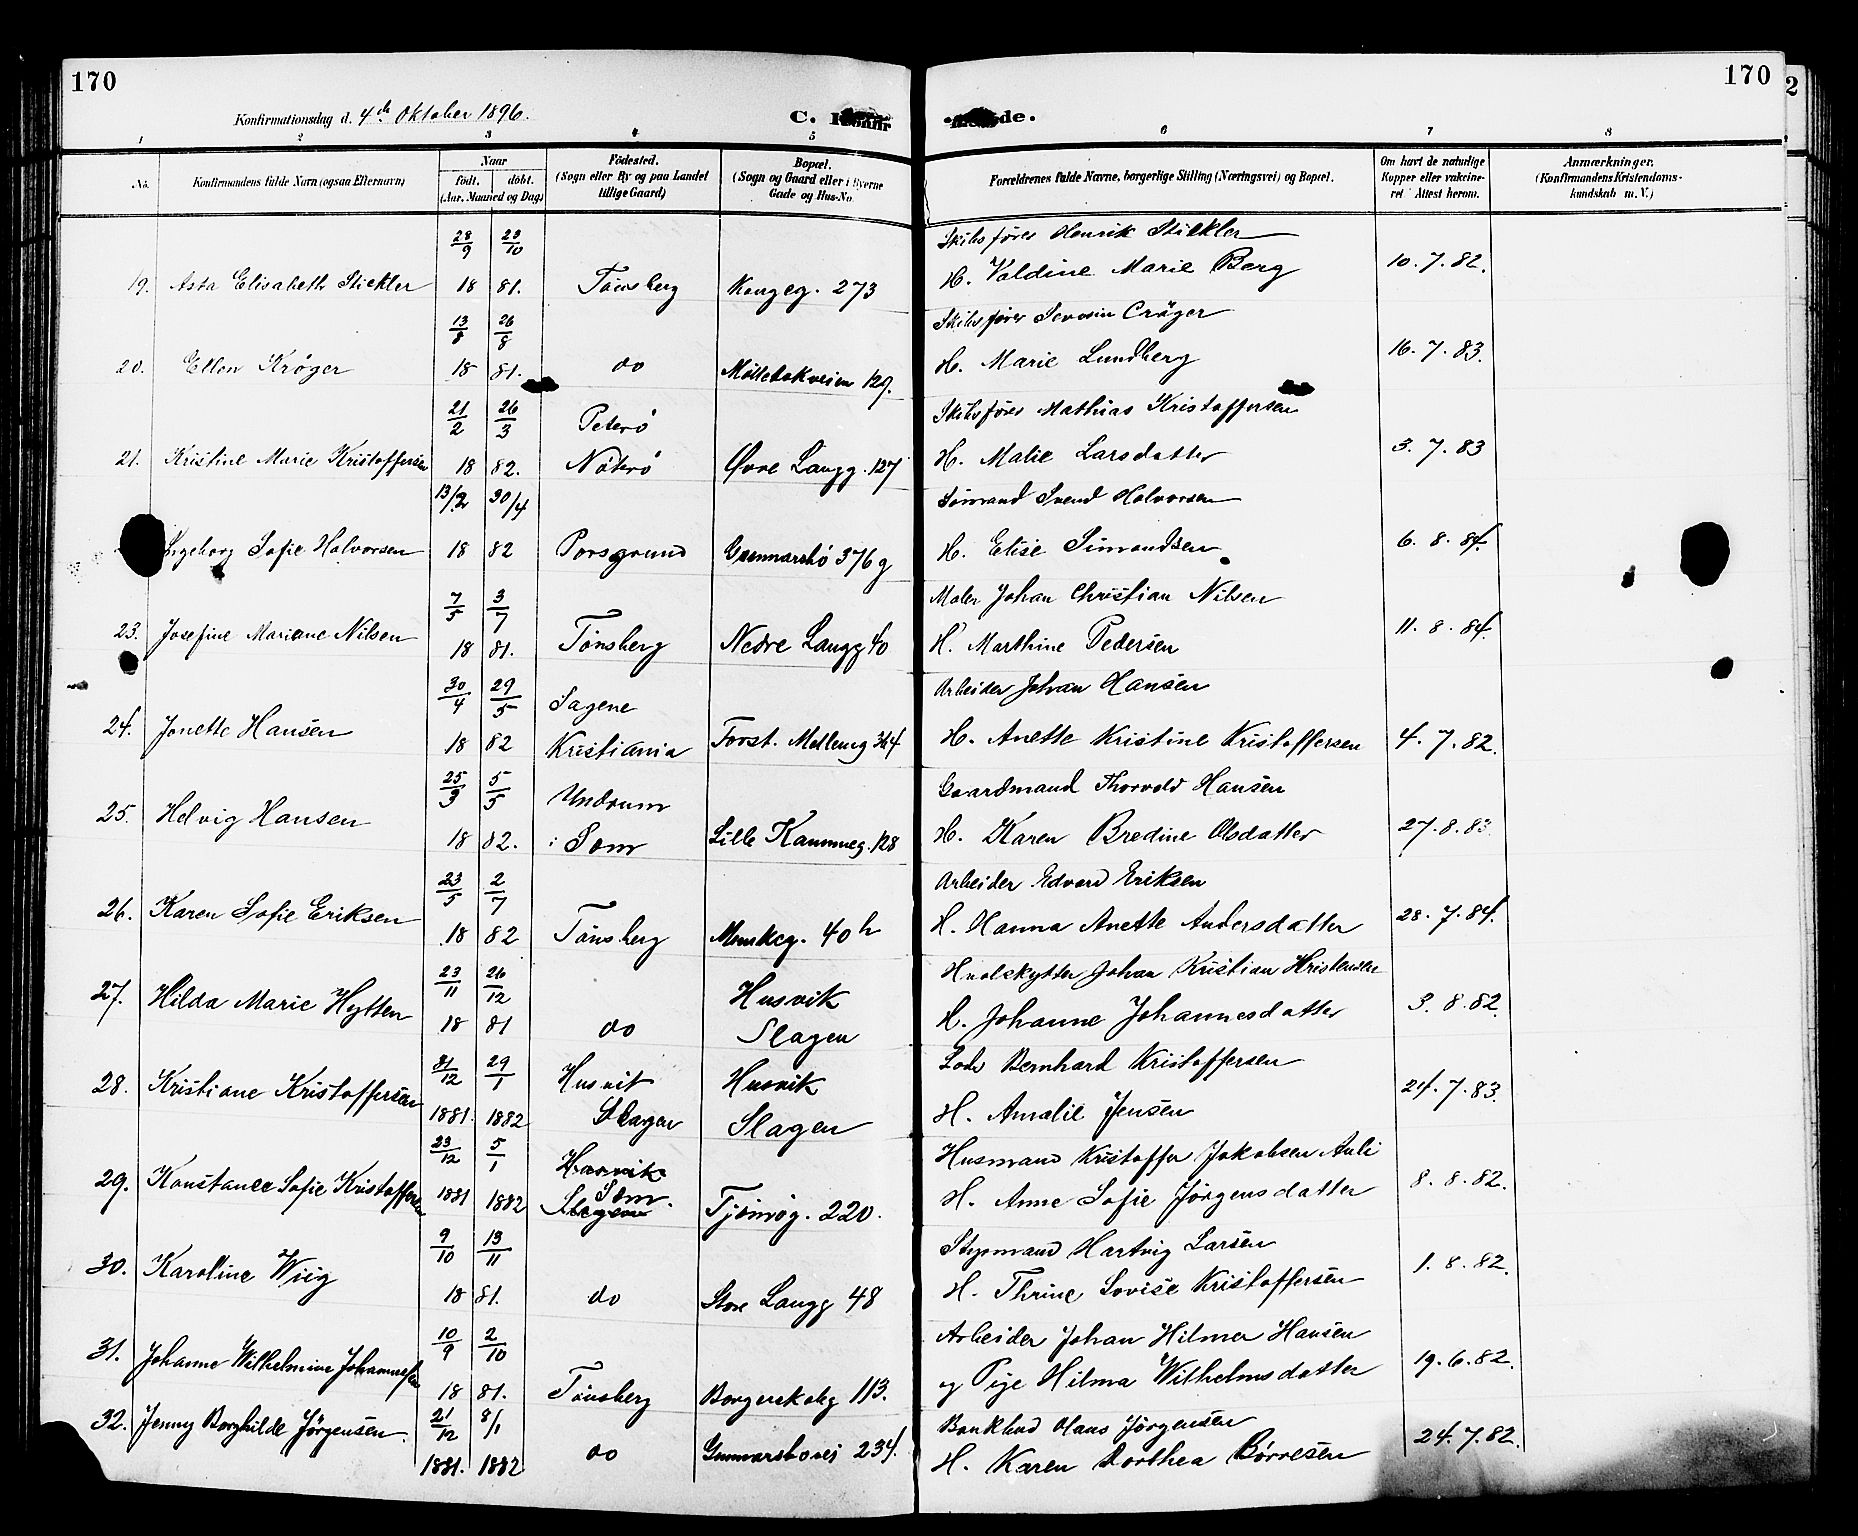 170
170
2
Konfirmationsdag d. 4de Oktober 1896.
C.
de.
1 2 3 4 5 6 7 8
No. Konfirmandens fulde Navn (ogsaa Efternavn) Naar født. døbt. (Aar, Maaned og Dag) Fødested. (Sogn eller By og paa Landet tillige Gaard) Bopæl. (Sogn og Gaard eller i Byerne Gade og Hus-No. Forældrenes fulde Navne, borgerlige Stilling (Næringsvei) og Bopæl. Om havt de naturlige Kopper eller vakcineret Attest herom. Anmærkninger. (Konfirmandens Kristendomskundskab m. V.)
28/9 23/10 Skibsfører Henrik Stickler
19. Asta Elisabeth Stickler 18 81. Tønsberg Kongeg. 273 H. Valdine Marie Berg 10.7.82.
13/8 26/8 Skibsfører Severin Crøger
20. Ellen Krøger 18 81. do Møllebakveien 129. H. Marie Lundberg 16.7.83.
21/2 26/3 Peterø Skibsfører Mathias Kristoffersen
21. Kristine Marie Kristoffersen 18 82. Nøterø Øvre Langg. 127 H. Malie Larsdatter 3.7.83
13/2 30/4 Sømand Svend Halvorsen
Ingeborg Sofie Halvorsen 18 82 Porsgrund Gunnarsbø 376 g H. Elise Simondsen 6.8.84.
7/5 3/7 Maler Johan Christian Nilsen
23. Josefine Mariane Nilsen 18 81. Tønsberg Nedre Langg 40 H. Marthine Pedersen 11.8.84.
30/4 29/5 Sagene Arbeider Johan Hansen
24. Jonette Hansen 18 82 Kristiania Forst. Mølleng 364 H. Anette Kristine Kristoffersen 4.7.82.
25/3 5/5 Undrum Gaardmand Thorvald Hansen
25. Helvig Hansen 18 82. i Sem Lille Kammeg. 128 H. Karen Bredine Olsdatter 27.8.83.
23/5 2/7 Arbeider Edvard Eriksen
26. Karen Sofie Eriksen 18 82 Tønsberg Munkeg. 40 h H. Hanna Anette Andersdatter 28.7.84.
23/11 26/12 Husvik Hvalskytter Johan Kristian Kristensen
27. Hilda Marie Hytten 18 81 do Slagen H. Johanne Johannesdatter 3.8.82.
31/12 29/1 Husvik Husvik Lods Bernhard Kristoffersen
28. Kristiane Kristoffersen 1881. 1882 Slagen Slagen H. Amalie Jensen 24.7.83.
23/12 5/1 Husvik Husmand Kristoffer Jakobsen Auli
29. Konstance Sofie Kristoffersen 1881 1882 Slagen Sem. Tjømøg. 220. H. Anne Sofie Jørgensdatter 8.8.82.
9/10 13/11 Styrmand Hartvig Larsen
30. Karoline Wiig 18 81. do Store Langg 48 H. Thrine Lovise Kristoffersen 1.8.82.
10/9 2/10 Arbeider Johan Hilmer Hansen
31. Johanne Wilhelmine Johannessen 18 81. Tønsberg Borgerskolg 113. og Pige Hilma Wilhelmsdatter 19.6.82.
32. Jenny Borghilde Jørgensen. 21/12 8/1 Hans Jørgensen
1881. 1882 do Gunnarsbovei 234. H. Karen Dorthea Børresen 24.7.82.